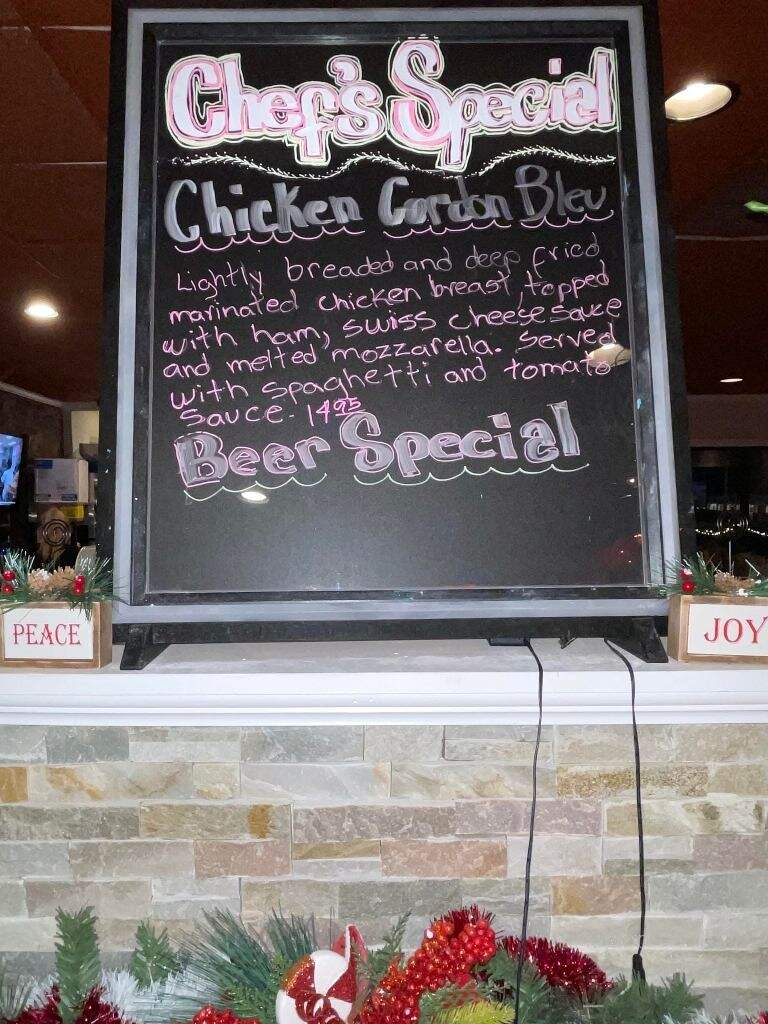 Chef's Special
Chicken Cordon Bleu
Lightly breaded and deep fried
marinated chicken breast, topped
with ham, swiss cheese sauce
and melted mozzarella. Served
with spaghetti and tomato
sauce - 14.95
Beer Special
PEACE
JOY